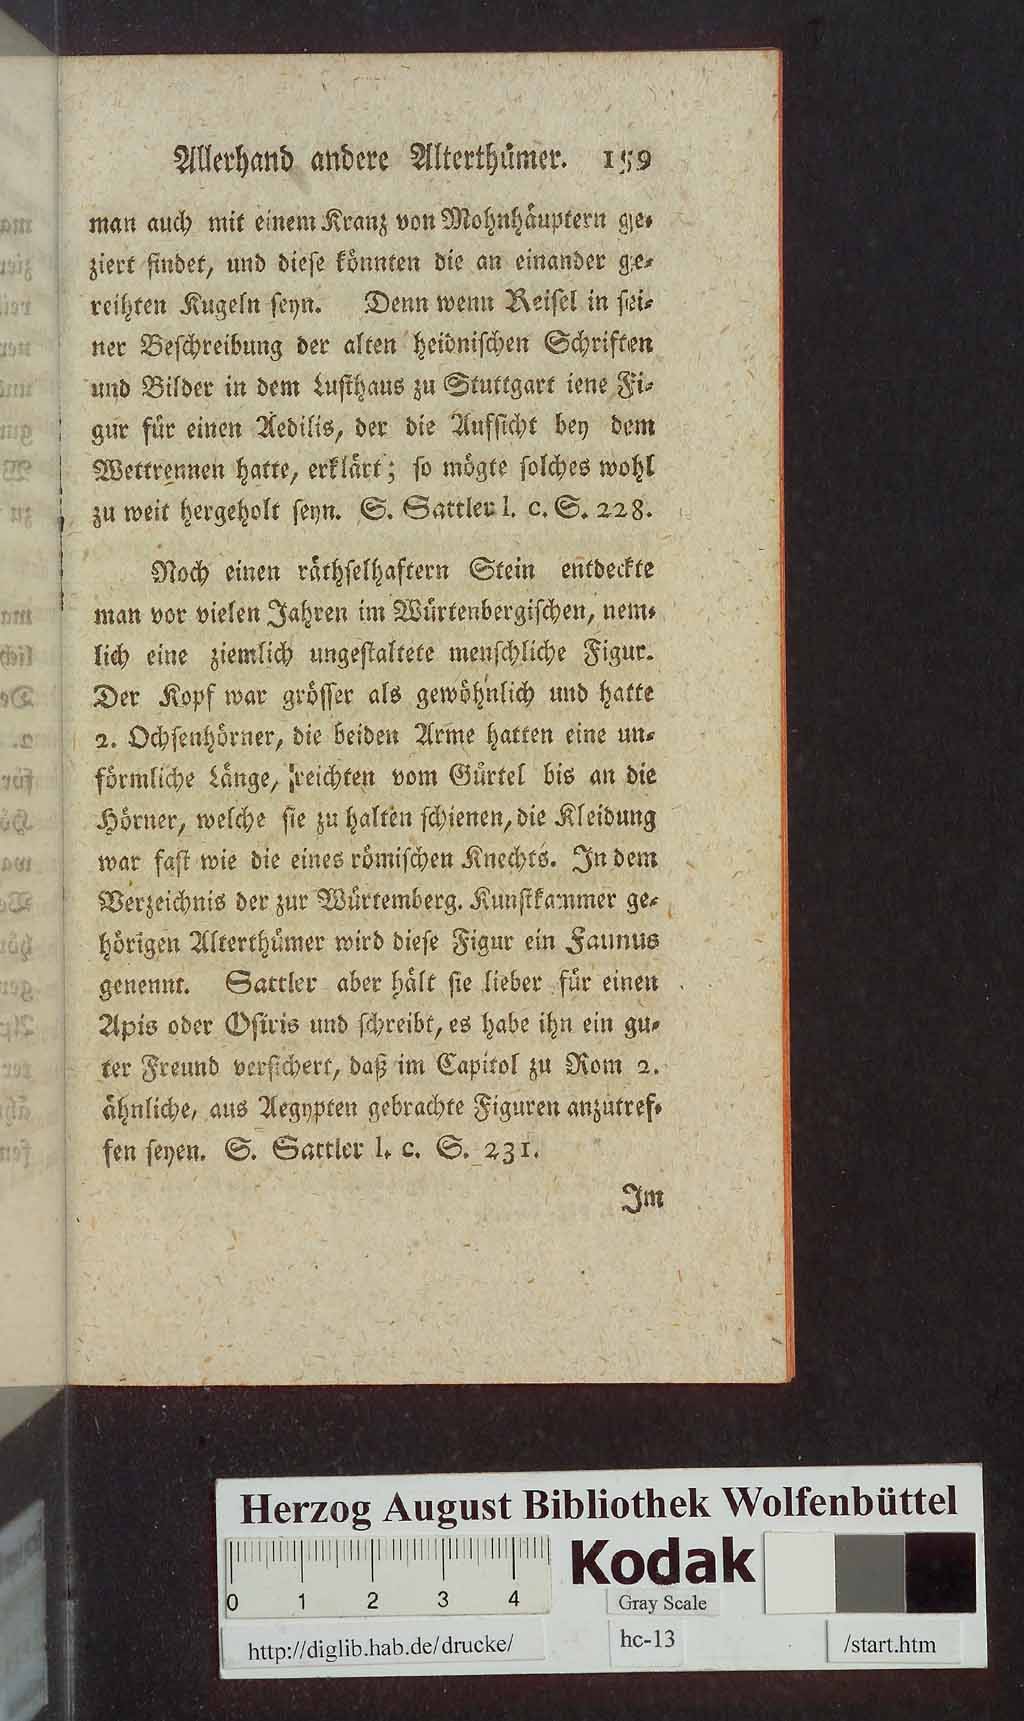 Allerhand andere Alterthümer. 159
man auch mit einem Kranz von Mohnhäuptern ge-
ziert findet, und diese könnten die an einander ge-
reihten Kugeln seyn. Denn wenn Reisel in sei-
ner Beschreibung der alten heidnischen Schriften
und Bilder in dem Lusthaus zu Stuttgart iene Fi-
gur für einen Aedilis, der die Aufsicht bey dem
Wettrennen hatte, erklärt; so mögte solches wohl
zu weit hergeholt seyn. S. Sattler l. c. S. 228.
Noch einen räthselhaftern Stein entdeckte
man vor vielen Jahren im Würtenbergischen, nem-
lich eine ziemlich ungestaltete menschliche Figur.
Der Kopf war grösser als gewöhnlich und hatte
2. Ochsenhörner, die beiden Arme hatten eine un-
förmliche Länge, reichten vom Gürtel bis an die
Hörner, welche sie zu halten schienen, die Kleidung
war fast wie die eines römischen Knechts. In dem
Verzeichnis der zur Würtemberg. Kunstkammer ge-
hörigen Alterthümer wird diese Figur ein Faunus
genennt. Sattler aber hält sie lieber für einen
Apis oder Osiris und schreibt, es habe ihn ein gu-
ter Freund versichert, daß im Capitol zu Rom 2.
ähnliche, aus Aegypten gebrachte Figuren anzutref-
fen seyen. S. Sattler l. c. S. 231.
Im
Herzog August Bibliothek Wolfenbüttel
Kodak
0 1 2 3 4
Gray Scale
http://diglib.hab.de/drucke/ hc-13 /start.htm